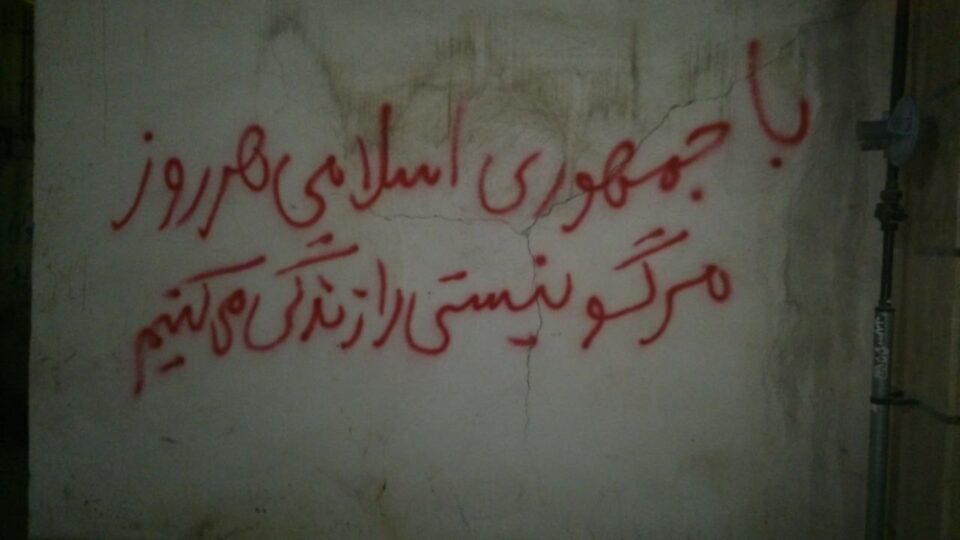 با جمهوری اسلامی هر روز
مرگ و نیستی را زندگی می کنیم